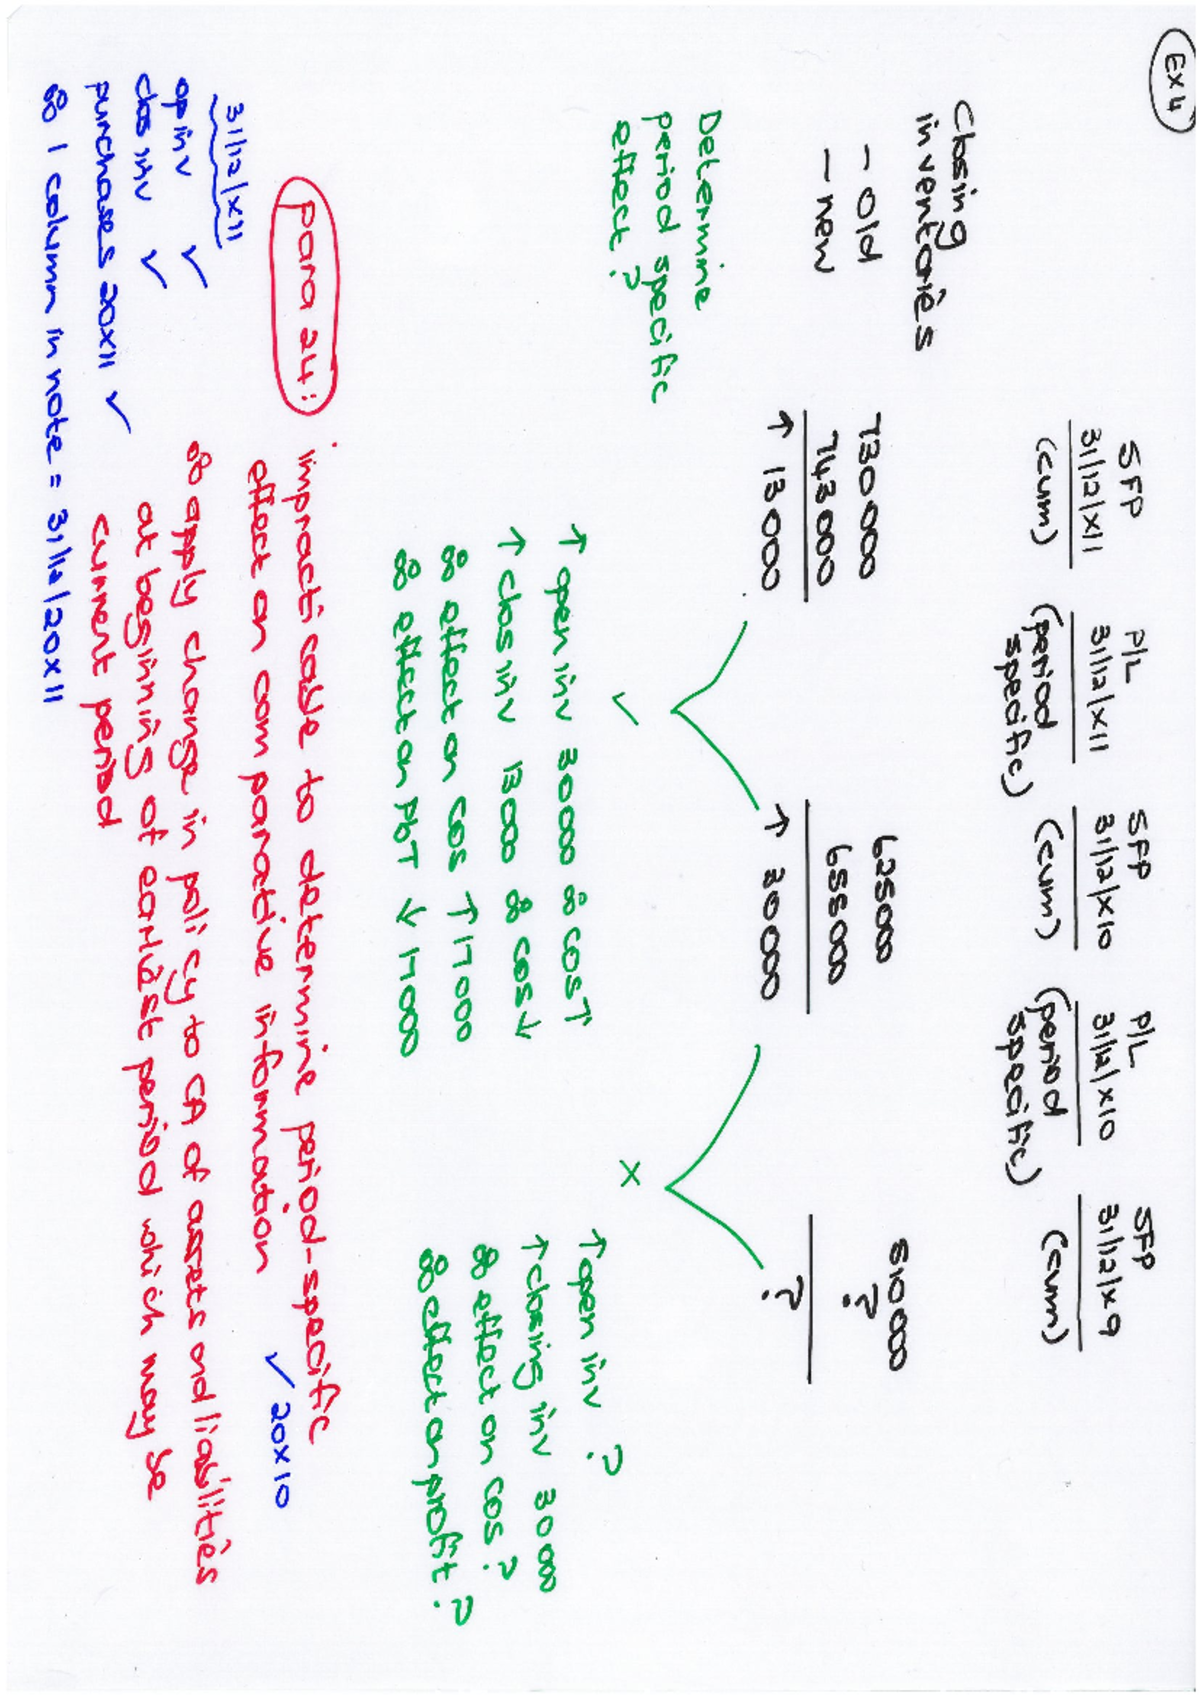 Ex 4
SFP
31/12/X11
(cum)
P/L
31/12/X11
(period
specific)
SFP
31/12/X10
(cum)
P/L
31/12/X10
(period
specific)
SFP
31/12/X9
(cum)
Closing
inventories
- old 730 000 625 000 510 000
- new 743 000 655 000 ?
↑ 13 000 ↑ 30 000 ?
Determine
period specific
effect?
✓
↑ open inv 30 000 ∴ COS↑
↑ clos inv 13 000 ∴ COS↓
∴ effect on COS ↑ 17 000
∴ effect on PbT ↓ 17 000
X
↑ open inv ?
↑ closing inv 30 000
∴ effect on COS?
∴ effect on profit?
Para 24:
impracticable to determine period-specific
effect on comparative information ✓ 20X10
∴ apply change in policy to CA of assets and liabilities
at beginning of earliest period which may be
current period
31/12/X11
op inv ✓
clos inv ✓
purchases 20X11 ✓
∴ 1 column in note = 31/12/20X11